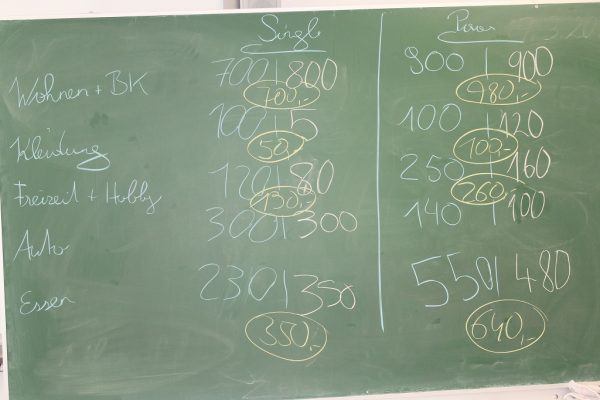 Single Paar
700 | 800 900 | 900
Wohnen + BK 700,- 980,-
100 | 5 100 | 120
Kleidung 50,- 100,-
120 | 80 250 | 160
Freizeit + Hobby 130,- 260,-
300 | 300 140 | 100
Auto
230 | 350 550 | 480
Essen
350,- 640,-